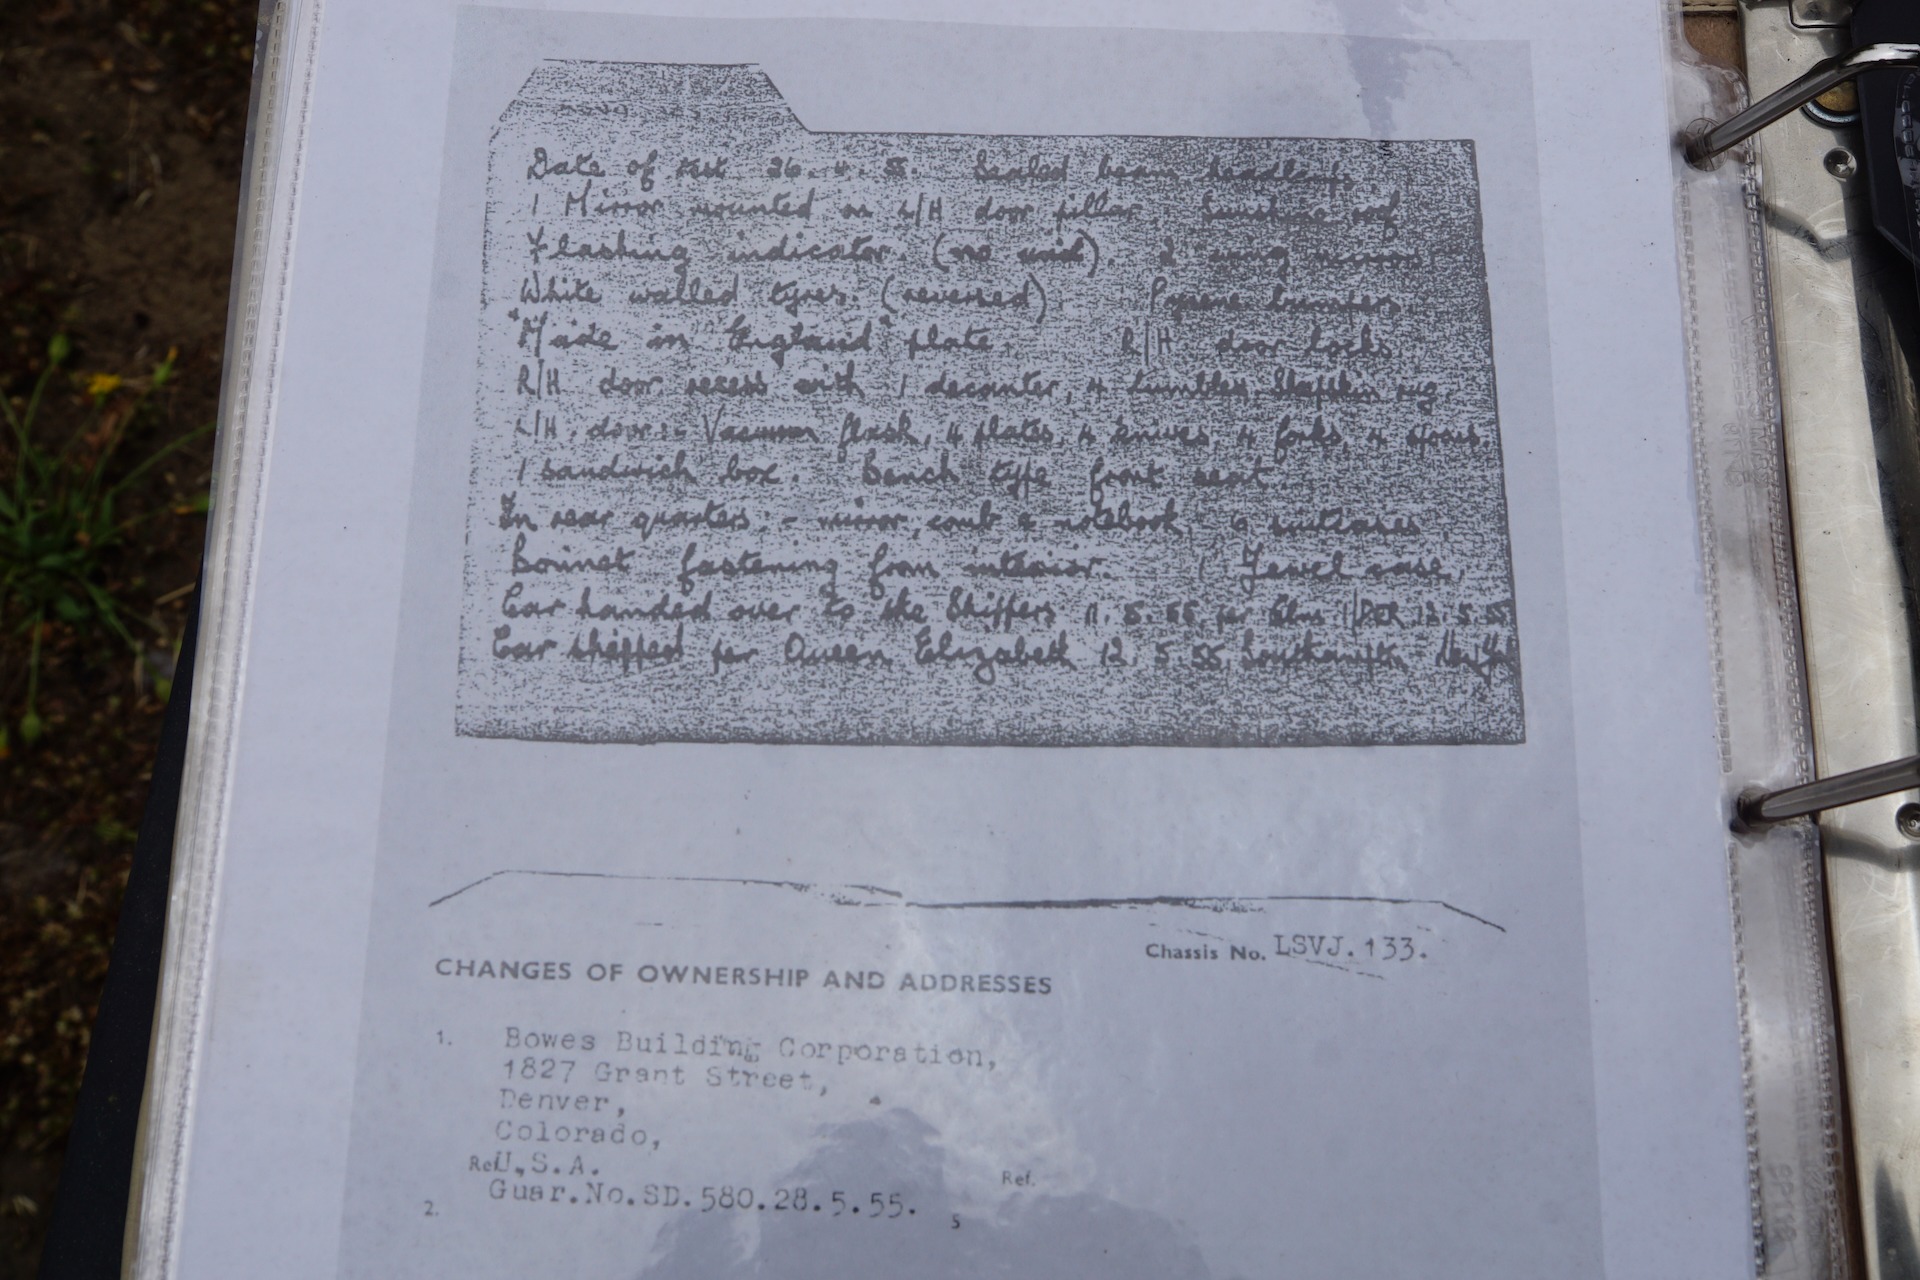 Date of test 26. 4. 5. Sealed beam headlamps.
1 Mirror mounted on L/H door pillar. Sunshine roof
Flashing indicator. (no unit). 2 wing mirrors
White walled tyres. (reversed) Pyrene bumpers.
"Made in England" plate. R/H door locks.
R/H door recess with 1 decanter, 4 tumblers,
L/H. door:- Vacuum flask, 4 plates, 4 knives, 4 forks, 4 spoons,
1 sandwich box. Bench type front seat.
In rear quarters:- mirror, comb & notebook, 6 suitcases
Bonnet fastening from interior. 1 Jewel case,
Car handed over to the Shippers 11. 5. 55 per 12. 5. 55
Car shipped per Queen Elizabeth 12. 5. 55. Southampton - New York
Chassis No. LSVJ.133.
CHANGES OF OWNERSHIP AND ADDRESSES
1. Bowes Building Corporation,
1827 Grant Street,
Denver,
Colorado,
Ref. U.S.A. Ref.
Guar.No.SD.580.28.5.55.
2. 5